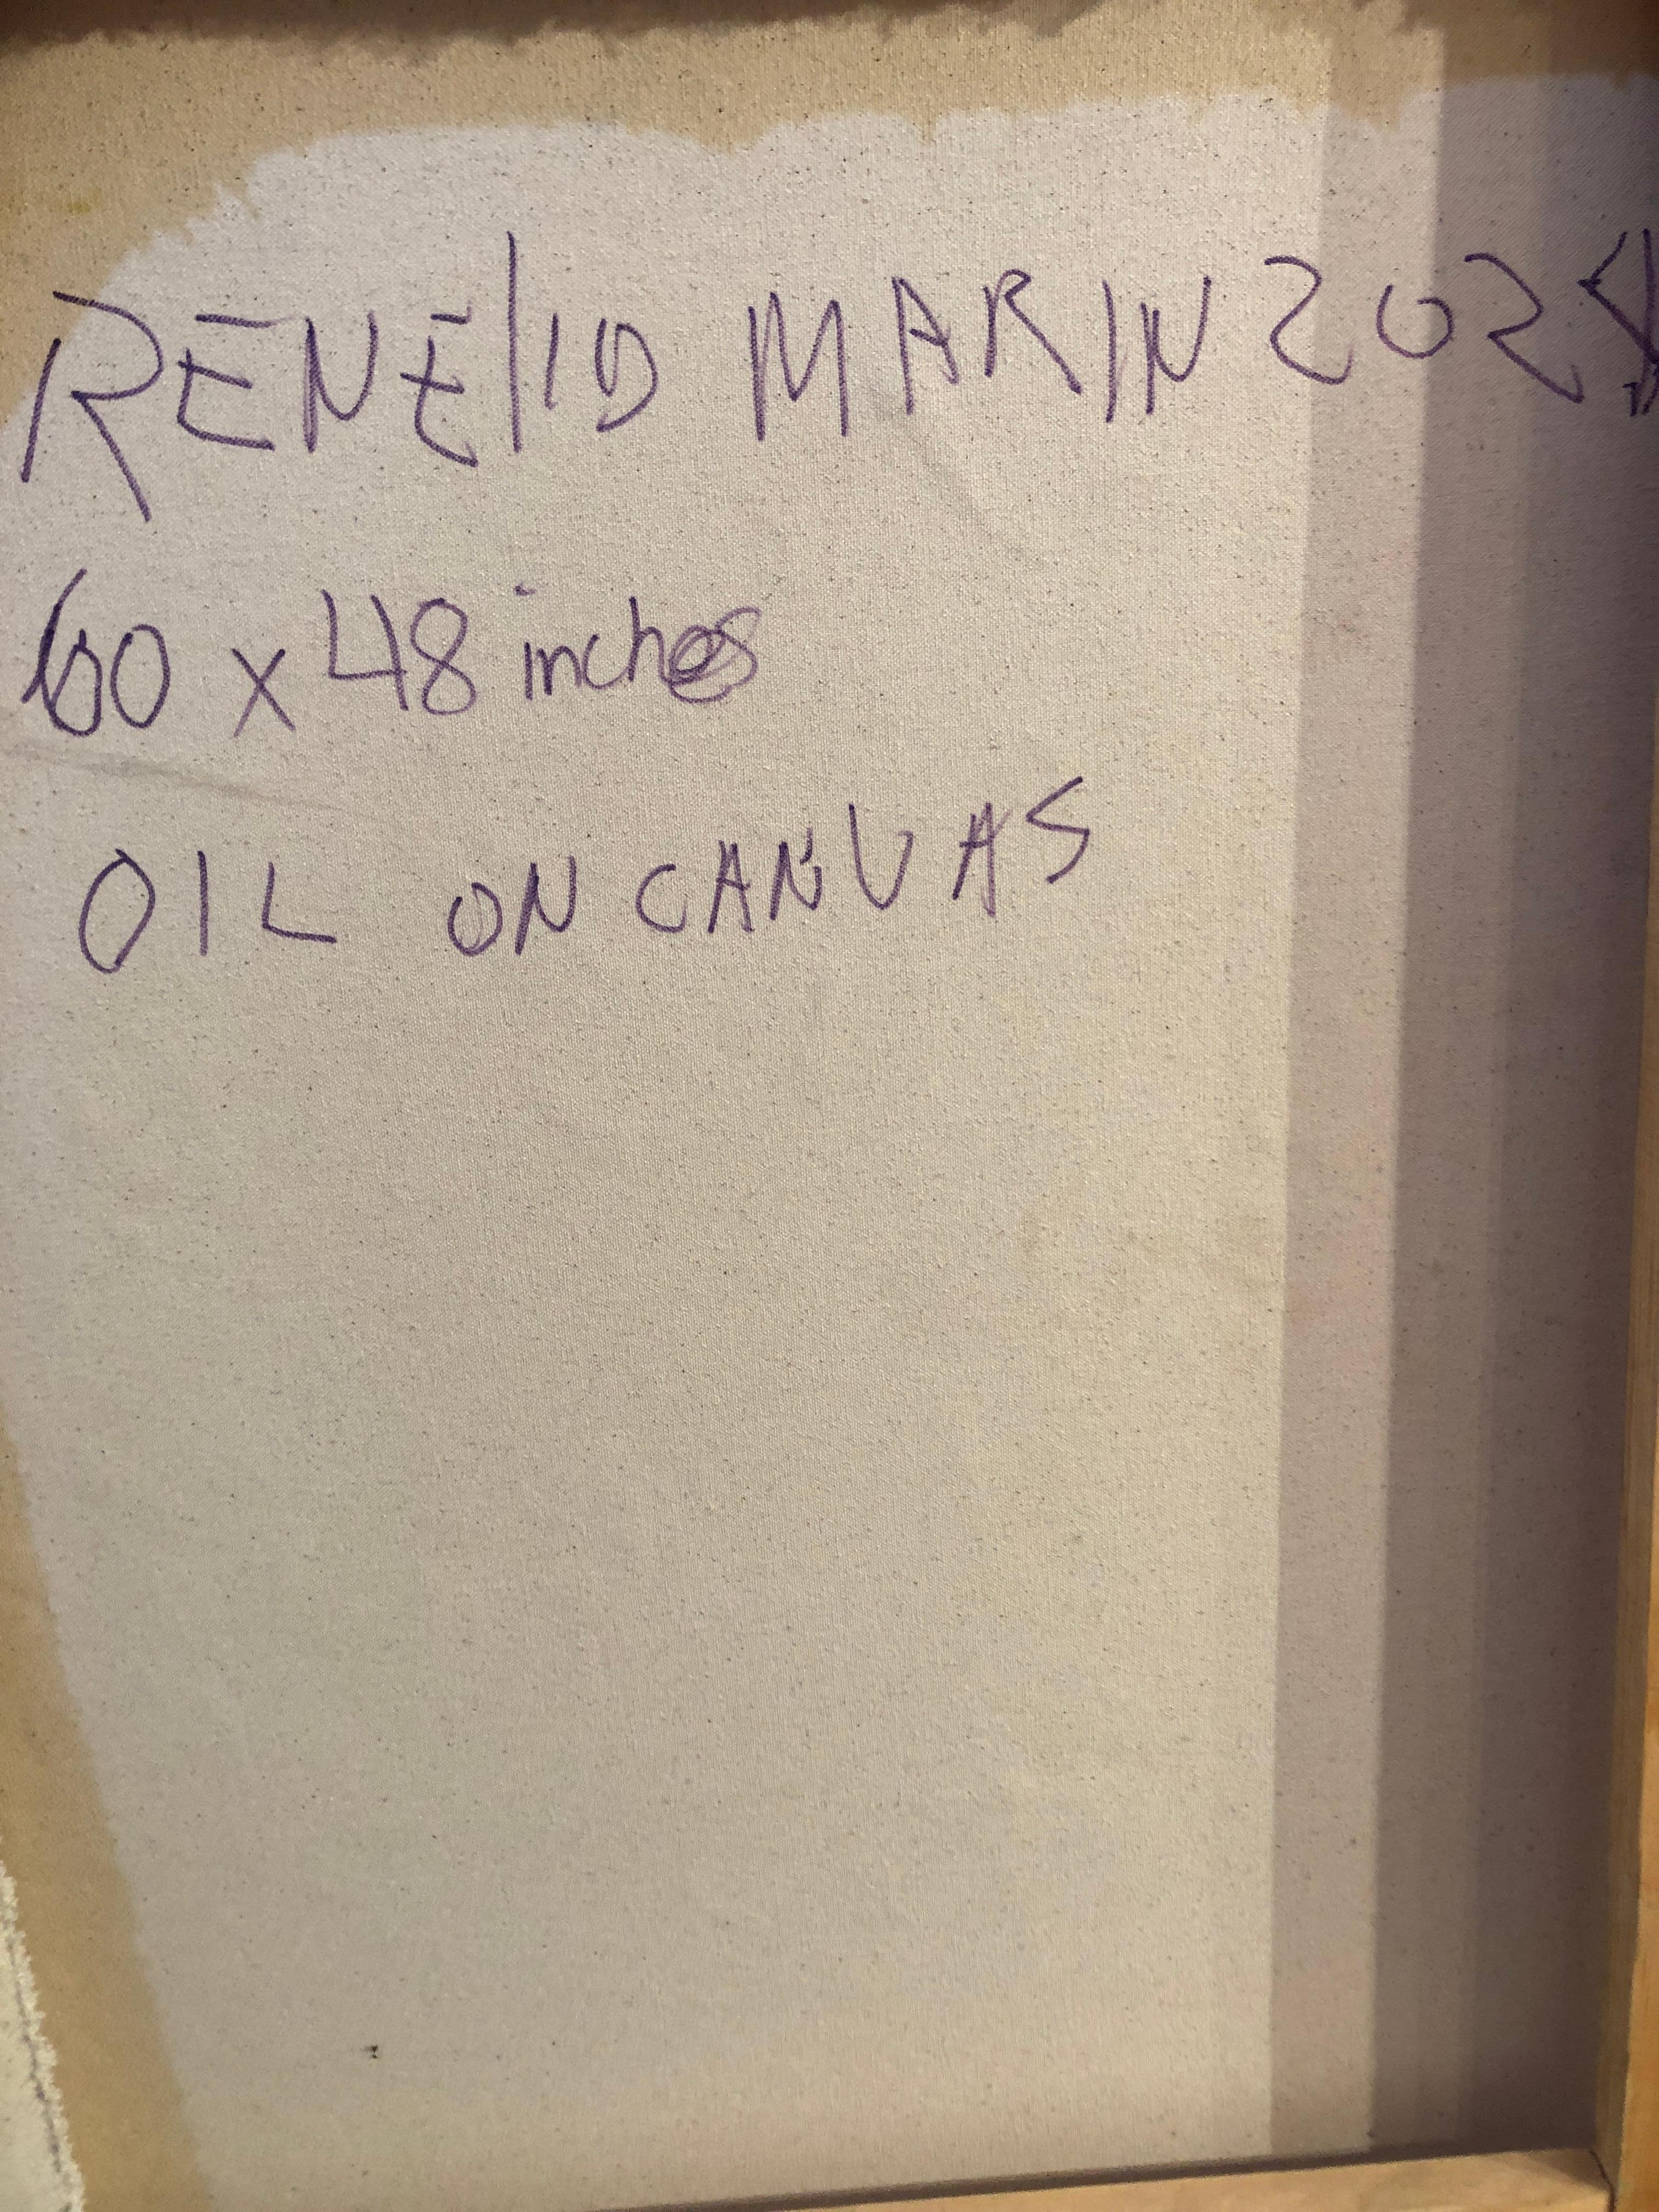 RENElIO MARIN
60 x 48 inches
OIL ON CANVAS